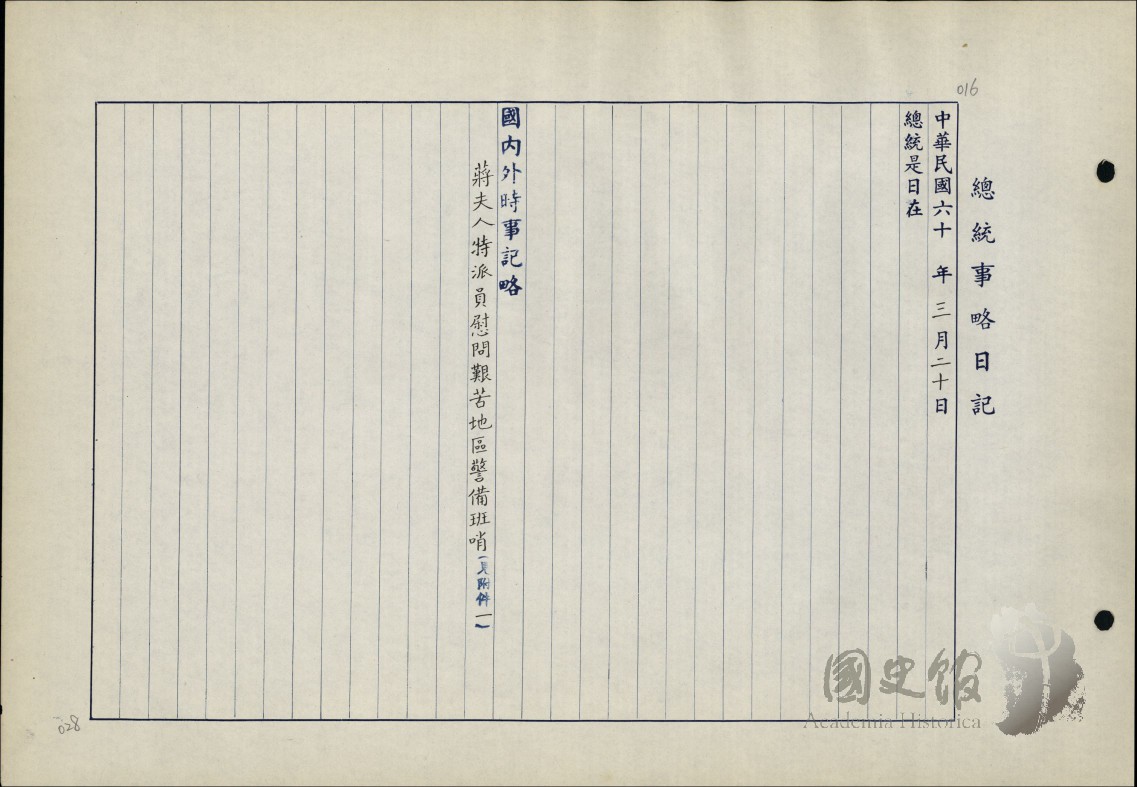 016
總統事略日記
中華民國六十 年 三月二十日
總統是日在
國內外時事記略
蔣夫人特派員慰問艱苦地區警備班哨(見附件一)
028
國史館
Academia Historica